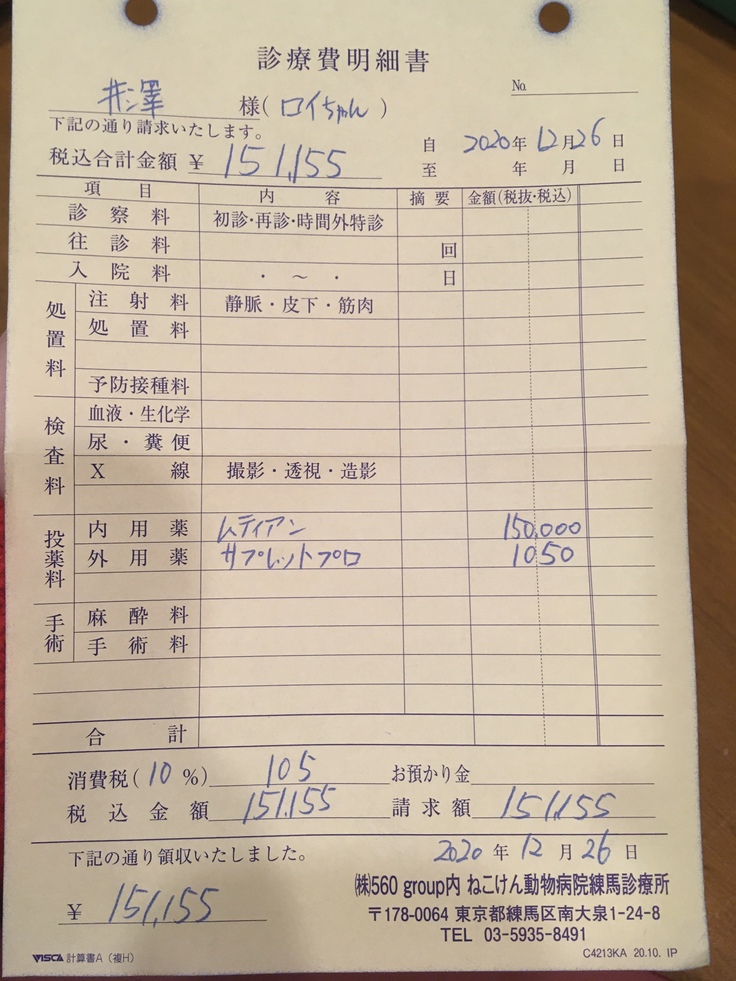 診療費明細書
No.
井澤 様(ロイちゃん)
下記の通り請求いたします。
自 2020年12月26日
税込合計金額 ¥ 151,155
至 年 月 日
項目 内容 摘要 金額(税抜・税込)
診察料 初診・再診・時間外特診
往診料 回
入院料 ・ ~ ・ 日
処置料
注射料 静脈・皮下・筋肉
処置料
予防接種料
検査料
血液・生化学
尿・糞便
X線 撮影・透視・造影
投薬料
内用薬 ムティアン 150,000
外用薬 サプレットプロ 1050
手術
麻酔料
手術料
合計
消費税(10%) 105 お預かり金
税込金額 151,155 請求額 151,155
下記の通り領収いたしました。 2020年12月26日
¥ 151,155
㈱560 group内 ねこけん動物病院練馬診療所
〒178-0064 東京都練馬区南大泉1-24-8
TEL 03-5935-8491
VISCA 計算書A(複H) C4213KA 20.10. IP